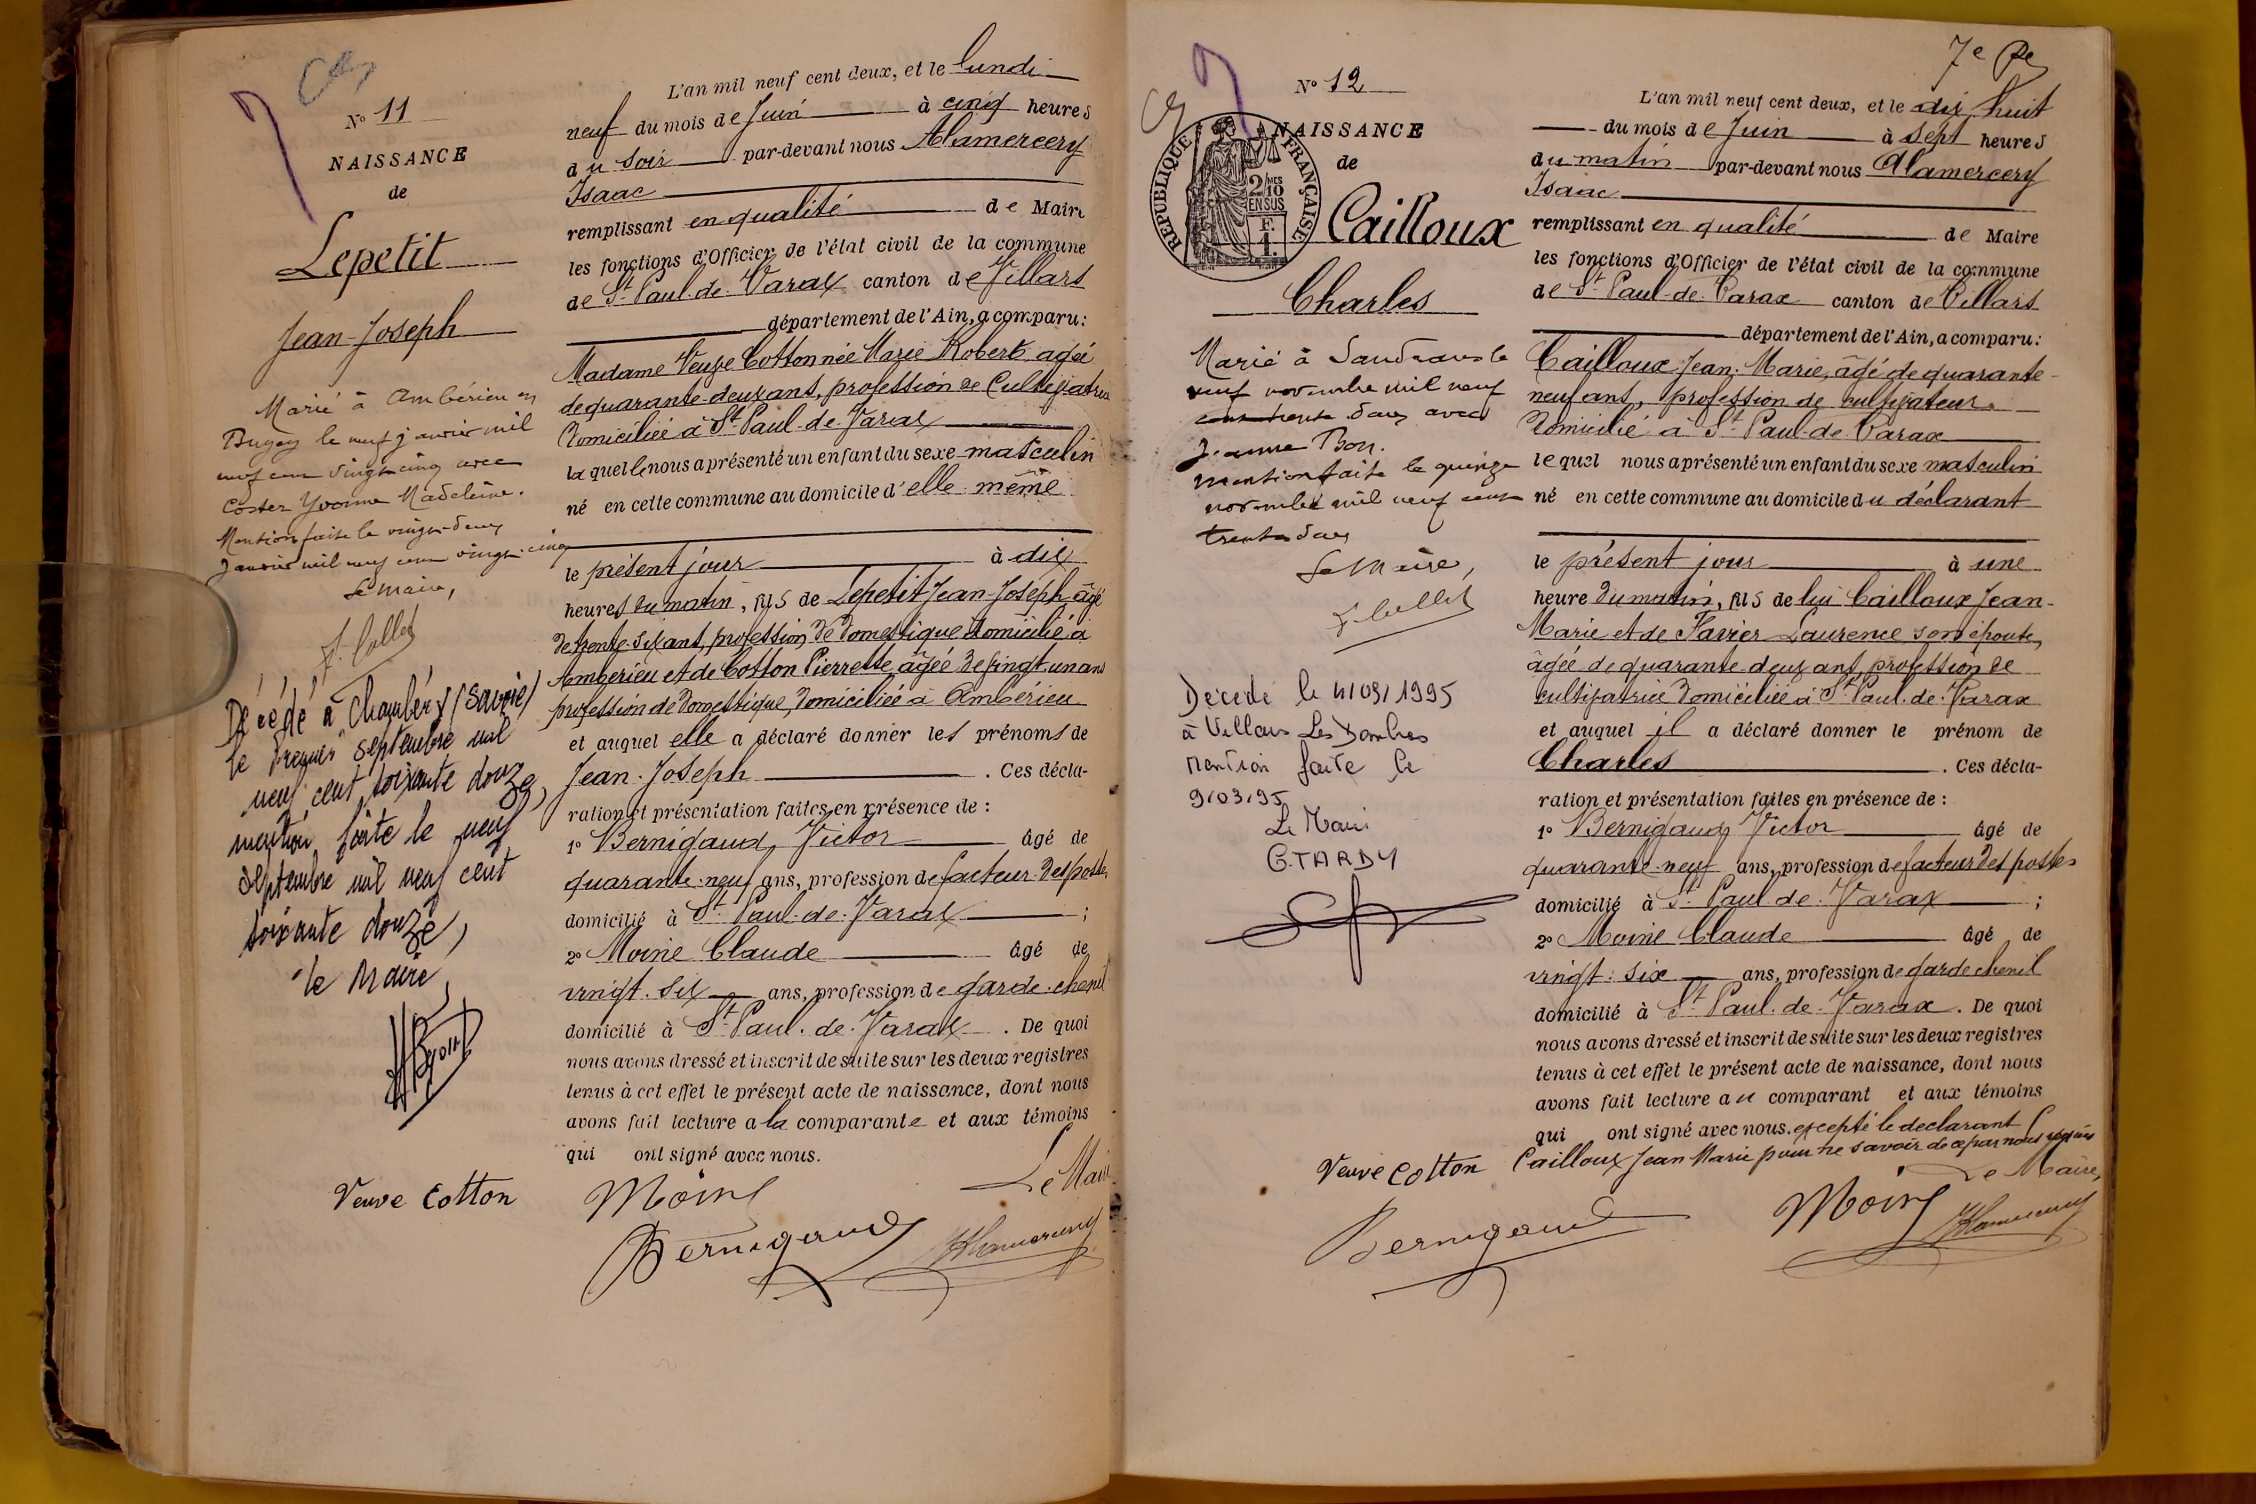 N° 11
NAISSANCE
de
Lepetit
Jean-Joseph
Marié à Ambérieu en
Bugey le neuf janvier mil
neuf cent vingt cinq avec
Coster Yvonne Madeleine.
Mention faite le vingt-deux
janvier mil neuf cent vingt-cinq
Le Maire,
Décédé à Chambéry (Savoie)
le premier septembre mil
neuf cent soixante douze,
mention faite le neuf
septembre mil neuf cent
soixante douze,
le Maire,
L'an mil neuf cent deux, et le lundi
neuf du mois de Juin à cinq heures
du soir par-devant nous Alamercery
Isaac
remplissant en qualité de Maire
les fonctions d'Officier de l'état civil de la commune
de St Paul-de-Varax canton de Villars
département de l'Ain, a comparu:
Madame Veuve Cotton née Marie Robert agée
de quarante-deux ans, profession de Cultivatrice
Domiciliée à St Paul-de-Varax
laquelle nous a présenté un enfant du sexe masculin
né en cette commune au domicile d'elle même
le présent jour à dix
heures du matin, fils de Lepetit Jean-Joseph âgé
de trente-six ans, profession de domestique domicilié à
Ambérieu et de Cotton Pierrette âgée de vingt-un ans
profession de domestique, domiciliée à Ambérieu
et auquel elle a déclaré donner les prénoms de
Jean-Joseph. Ces décla-
ration et présentation faites en présence de :
1° Bernigaud Victor âgé de
quarante-neuf ans, profession de facteur des postes
domicilié à St Paul-de-Varax ;
2° Moine Claude âgé de
vingt-six ans, profession de garde-chenil
domicilié à St Paul-de-Varax. De quoi
nous avons dressé et inscrit de suite sur les deux registres
tenus à cet effet le présent acte de naissance, dont nous
avons fait lecture a la comparante et aux témoins
qui ont signé avec nous.
Le Maire
Veuve Cotton Moine
Bernigaud Alamercery
7e Re
N° 12
NAISSANCE
de
RÉPUBLIQUE FRANÇAISE
2/10 MES
EN SUS
F.
1
Cailloux
Charles
Marié à Sandrans le
neuf novembre mil neuf
cent trente deux avec
Jeanne Bon.
Mention faite le quinze
novembre mil neuf cent
trente deux
Le Maire,
Décédé le 4/03/1995
à Villars Les Dombes
mention faite le
9/03/95
Le Maire
G. TARDY
L'an mil neuf cent deux, et le dix huit
du mois de Juin à sept heures
du matin par-devant nous Alamercery
Isaac
remplissant en qualité de Maire
les fonctions d'Officier de l'état civil de la commune
de St Paul-de-Varax canton de Villars
département de l'Ain, a comparu:
Cailloux Jean-Marie, âgé de quarante-
neuf ans, profession de cultivateur.
Domicilié à St Paul-de-Varax
lequel nous a présenté un enfant du sexe masculin
né en cette commune au domicile du déclarant
le présent jour à une
heure du matin, fils de lui Cailloux Jean-
Marie et de Favier Laurence son épouse,
âgée de quarante-deux ans, profession de
cultivatrice domiciliée à St Paul-de-Varax
et auquel il a déclaré donner le prénom de
Charles. Ces décla-
ration et présentation faites en présence de :
1° Bernigaud Victor âgé de
quarante-neuf ans, profession de facteur des postes
domicilié à St Paul-de-Varax ;
2° Moine Claude âgé de
vingt-six ans, profession de garde chenil
domicilié à St Paul-de-Varax. De quoi
nous avons dressé et inscrit de suite sur les deux registres
tenus à cet effet le présent acte de naissance, dont nous
avons fait lecture au comparant et aux témoins
qui ont signé avec nous. excepté le déclarant
Cailloux Jean Marie pour ne savoir de ce par nous requis
Le Maire,
Veuve Cotton
Bernigaud Moine Alamercery